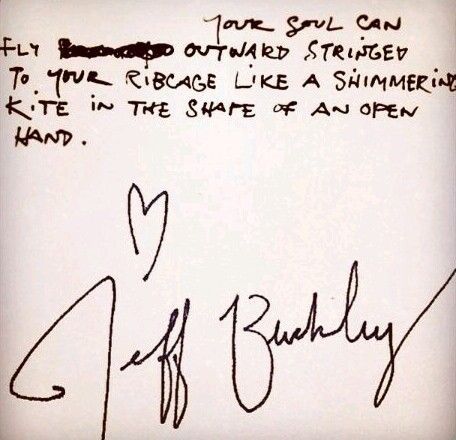 YOUR SOUL CAN
FLY OUTWARD STRINGED
TO YOUR RIBCAGE LIKE A SHIMMERING
KITE IN THE SHAPE OF AN OPEN
HAND.
Jeff Buckley